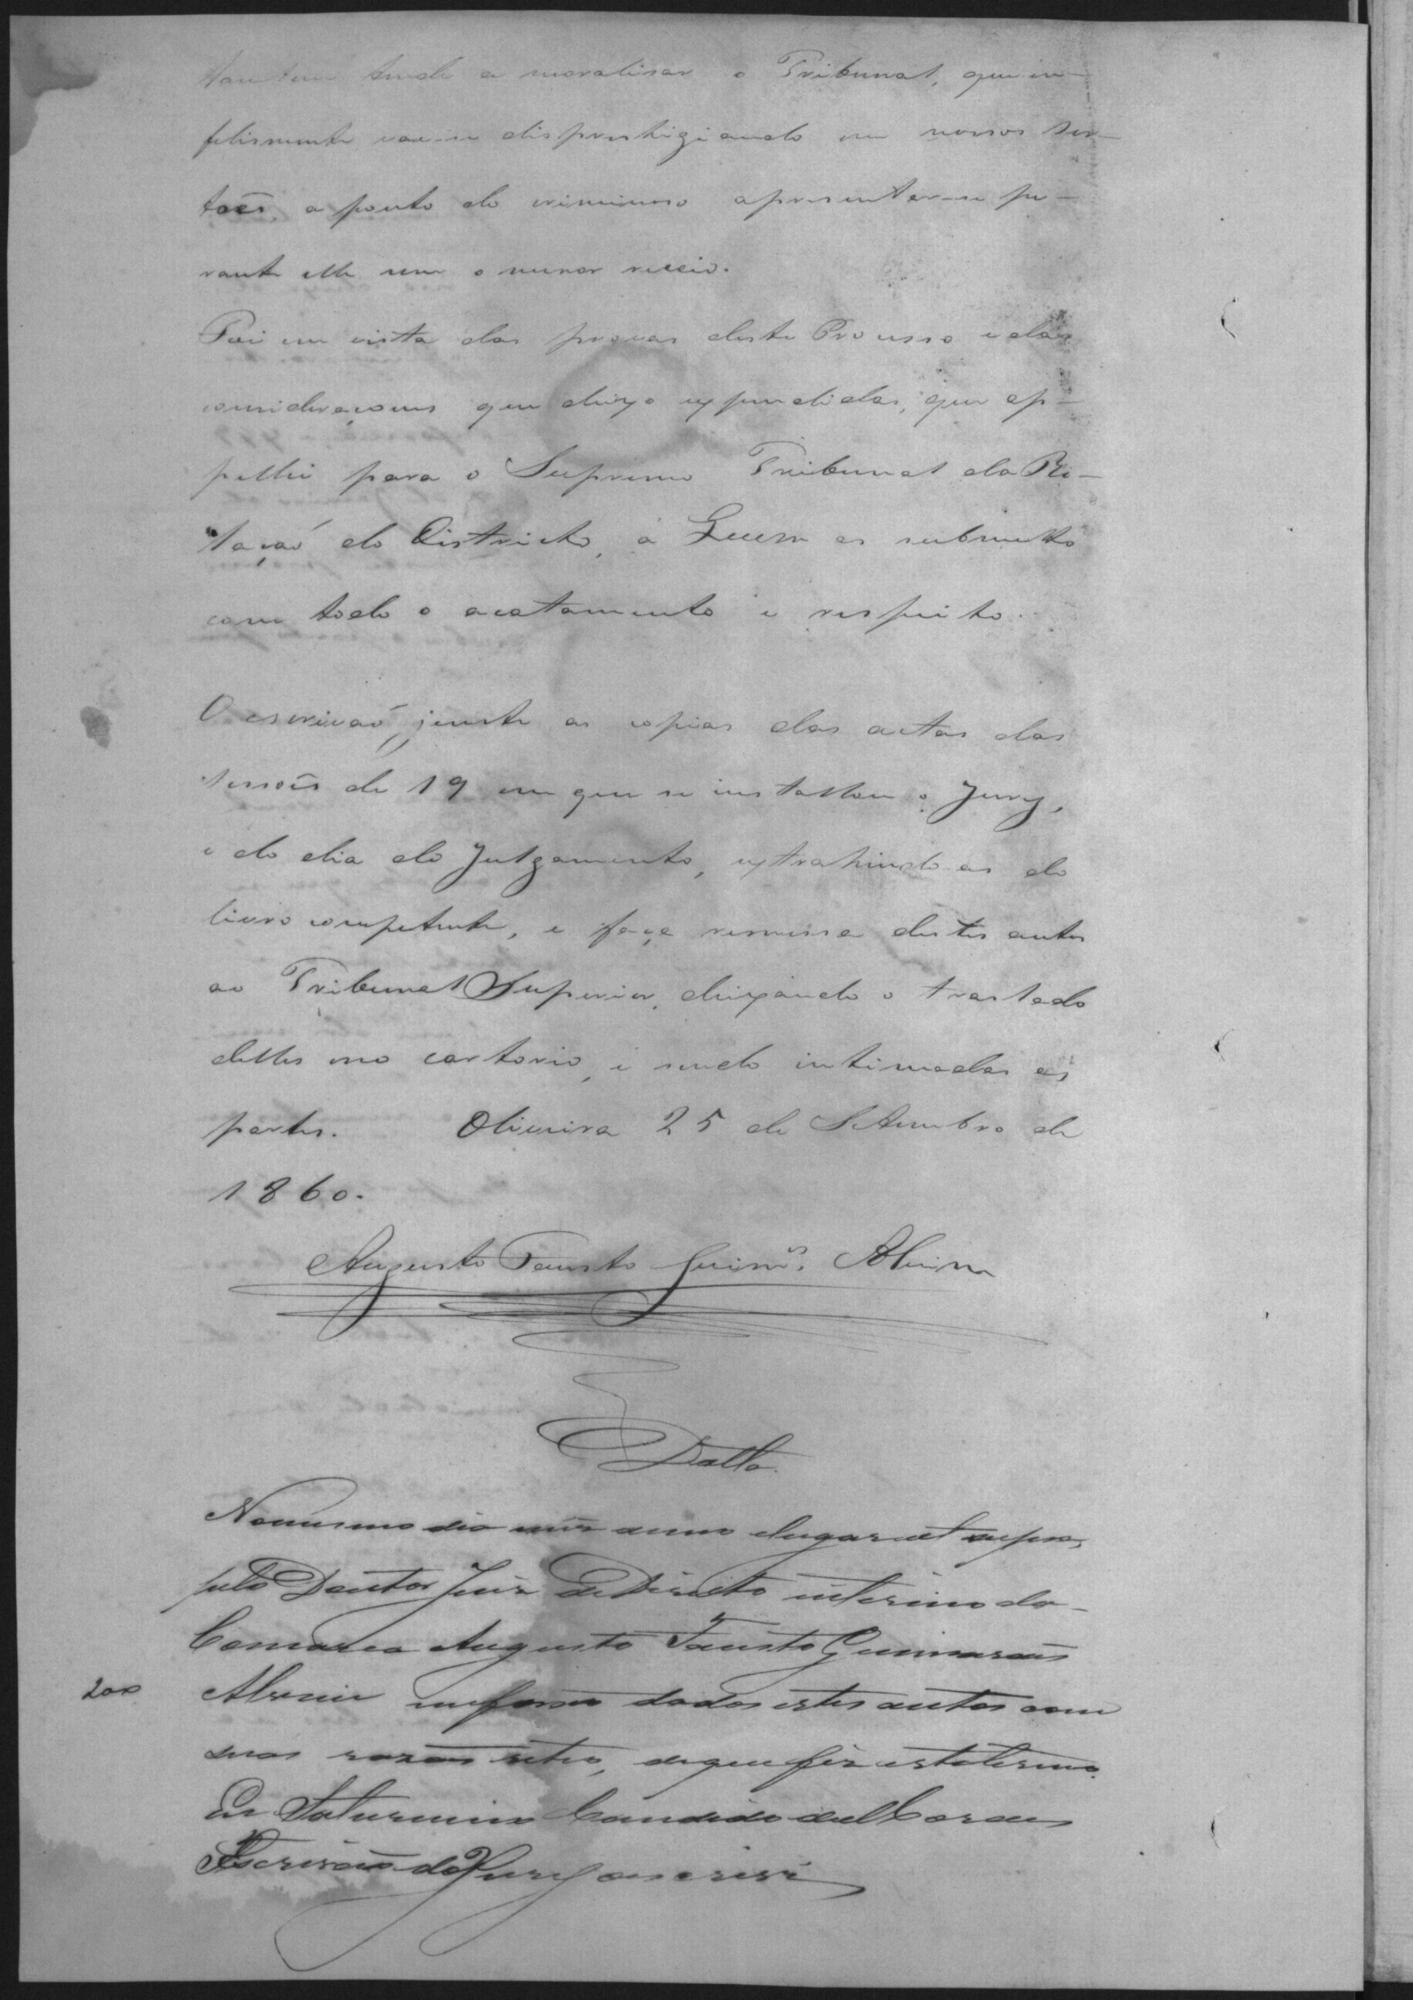 tambem tende a moralisar o Tribunal, que in-
felismente vae-se disprestigiando em nossos ser-
toẽs, a ponto do criminoso apresentar-se pe-
rante elle sem o menor receio.
Foi em vista das provas deste Processo e das
consideraçoens que deixo expendidas, que ap-
pellei para o Supremo Tribunal da Re-
laçaõ do Districto, á Quem as submetto
com todo o acatamento e respeito.
O escrivaõ junte as copias das actas das
sessoẽs de 19 em que se installou o Jury,
e do dia do Julgamento, extrahindo-as do
livro competente, e faça remessa destes autos
ao Tribunal Superior, deixando o traslado
delles no cartorio, e sendo intimadas as
partes. Oliveira 25 de Setembro de
1860.
Augusto Fausto Guim.es Alvim
Datta
No mesmo dia mez anno e lugar ret supra,
pelo Doutor Juiz de Direito interino da
Comarca Augusto Fausto Guimaraẽs
200 Alvim me foraõ dados estes autos com
suas razoẽs retro, de que fiz este termo.
Eu Saturnino Candido
Escrivaõ do Jury o escrevi